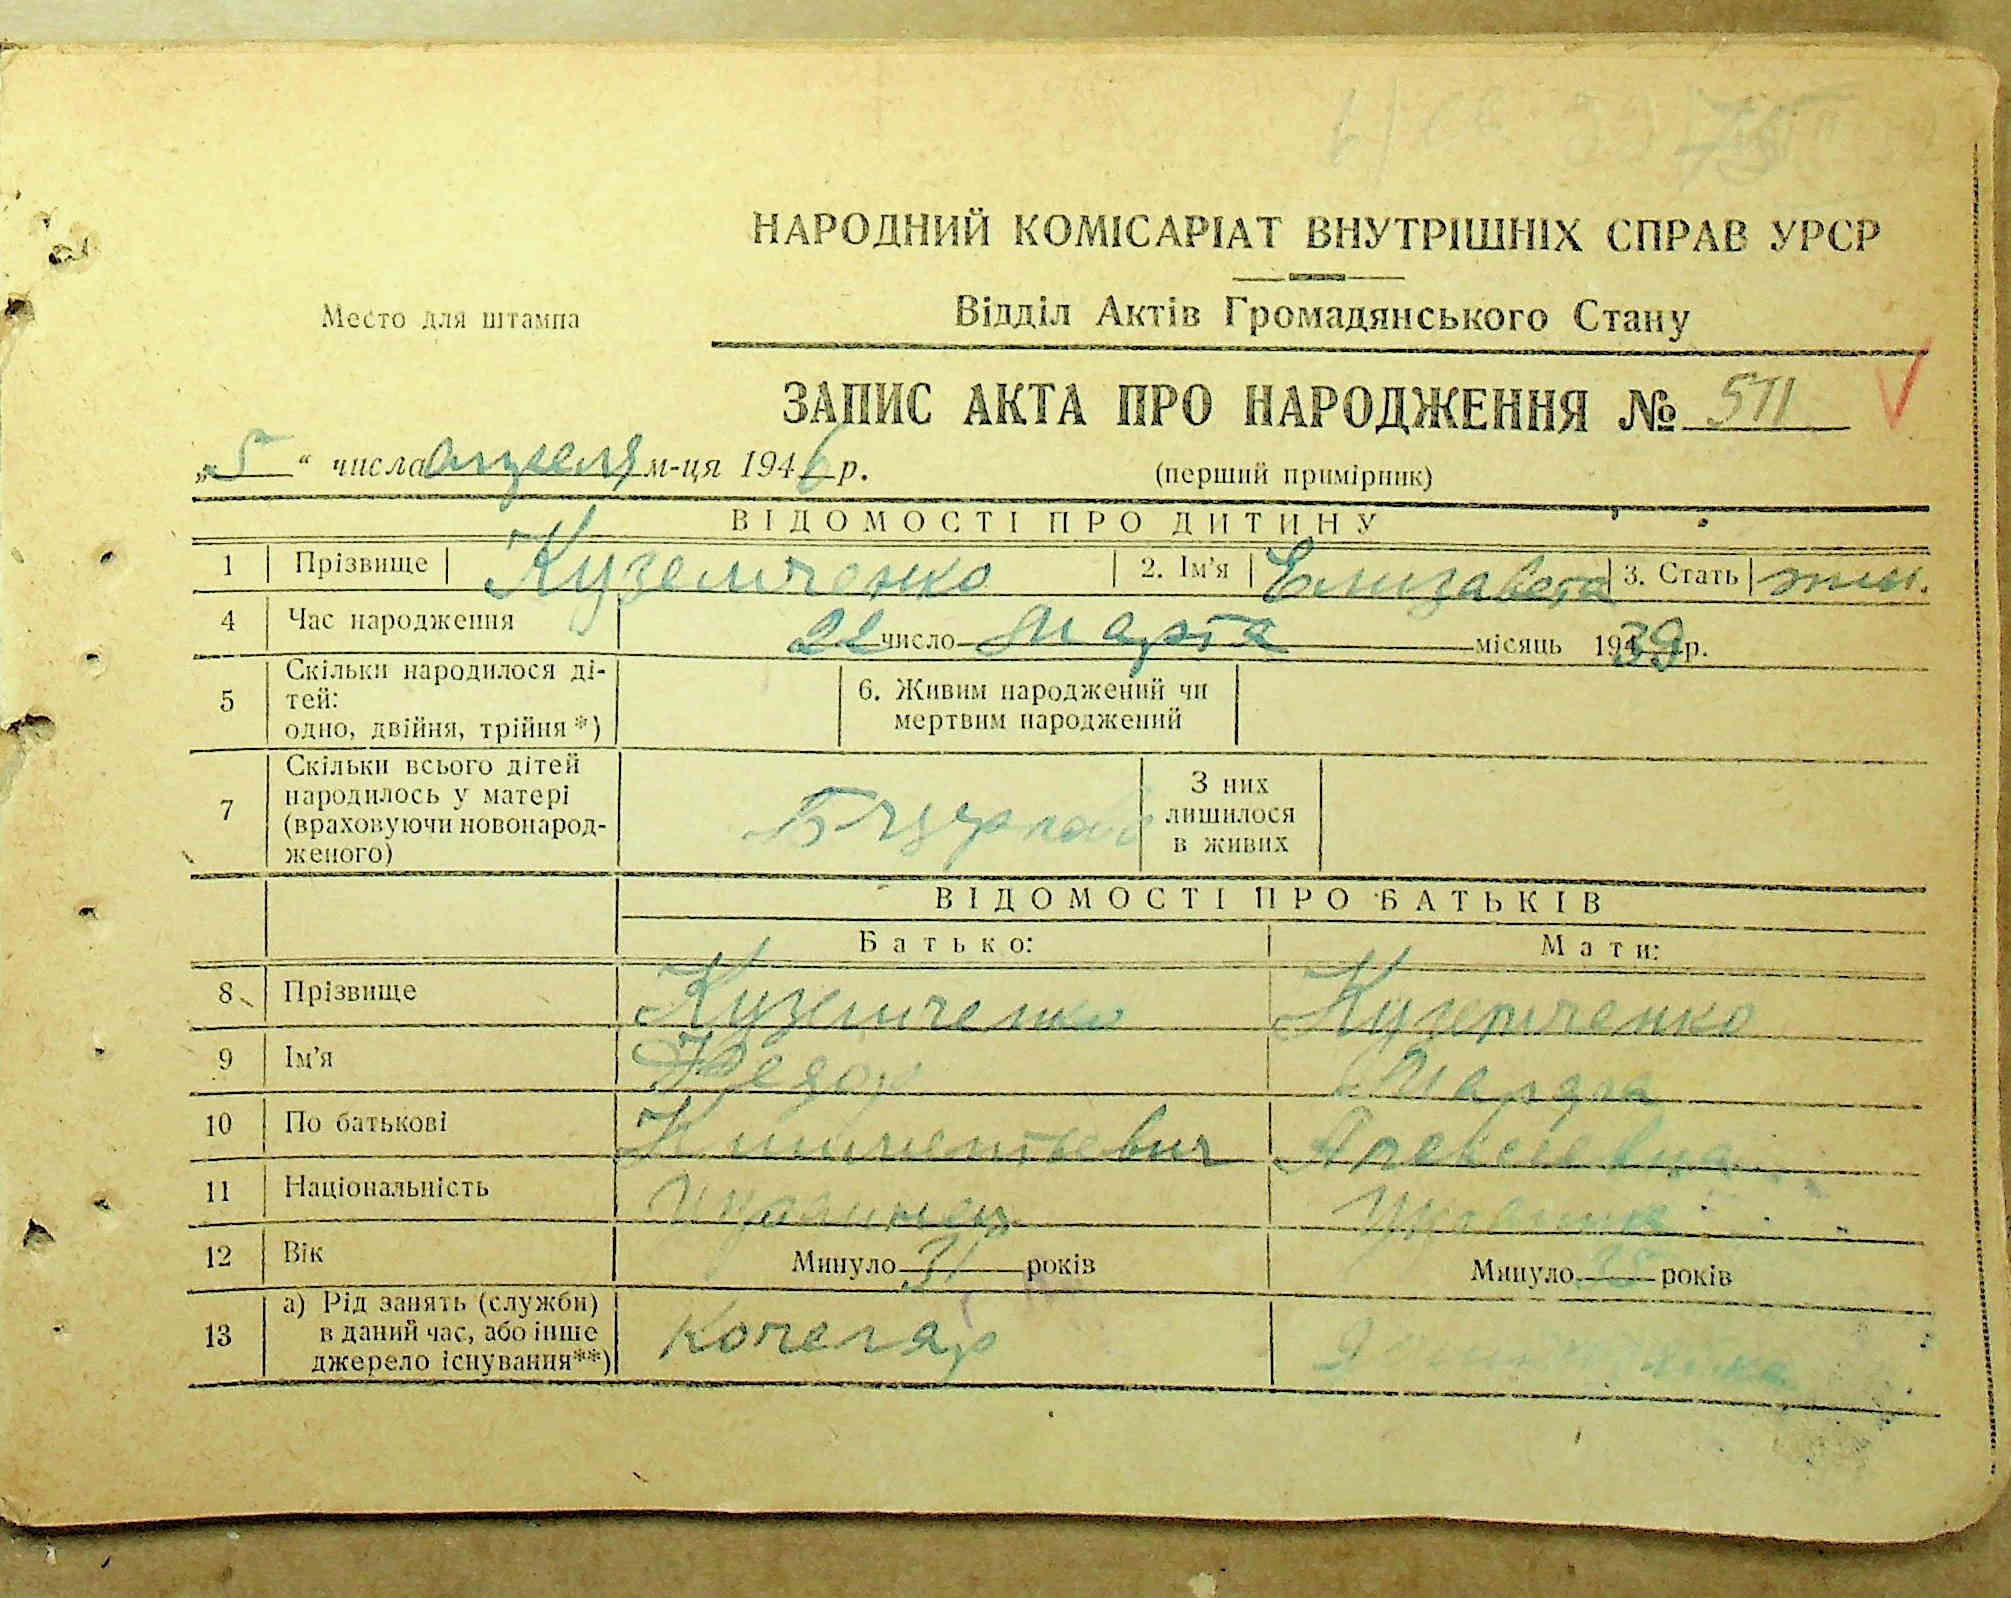 НАРОДНИЙ КОМІСАРІАТ ВНУТРІШНІХ СПРАВ УРСР
Место для штампа
Відділ Актів Громадянського Стану
ЗАПИС АКТА ПРО НАРОДЖЕННЯ № 511
„5“ числа апреля м-ця 1946 р. (перший примірник)
ВІДОМОСТІ ПРО ДИТИНУ
1 Прізвище Куземченко 2. Ім'я Елизавета 3. Стать жен.
4 Час народження 22 число Марта місяць 1939 р.
5 Скільки народилося ді-
тей:
одно, двійня, трійня *)
6. Живим народжений чи
мертвим народжений
7 Скільки всього дітей
народилось у матері
(враховуючи новонарод-
женого)
З них
лишилося
в живих
ВІДОМОСТІ ПРО БАТЬКІВ
Батько: Мати:
8 Прізвище Куземченко Куземченко
9 Ім'я Федор
10 По батькові Климентьевич Алексеевна
11 Національність Украинец Украинка
12 Вік Минуло 31 років Минуло 35 років
13 а) Рід занять (служби)
в даний час, або інше
джерело існування**)
Кочегар